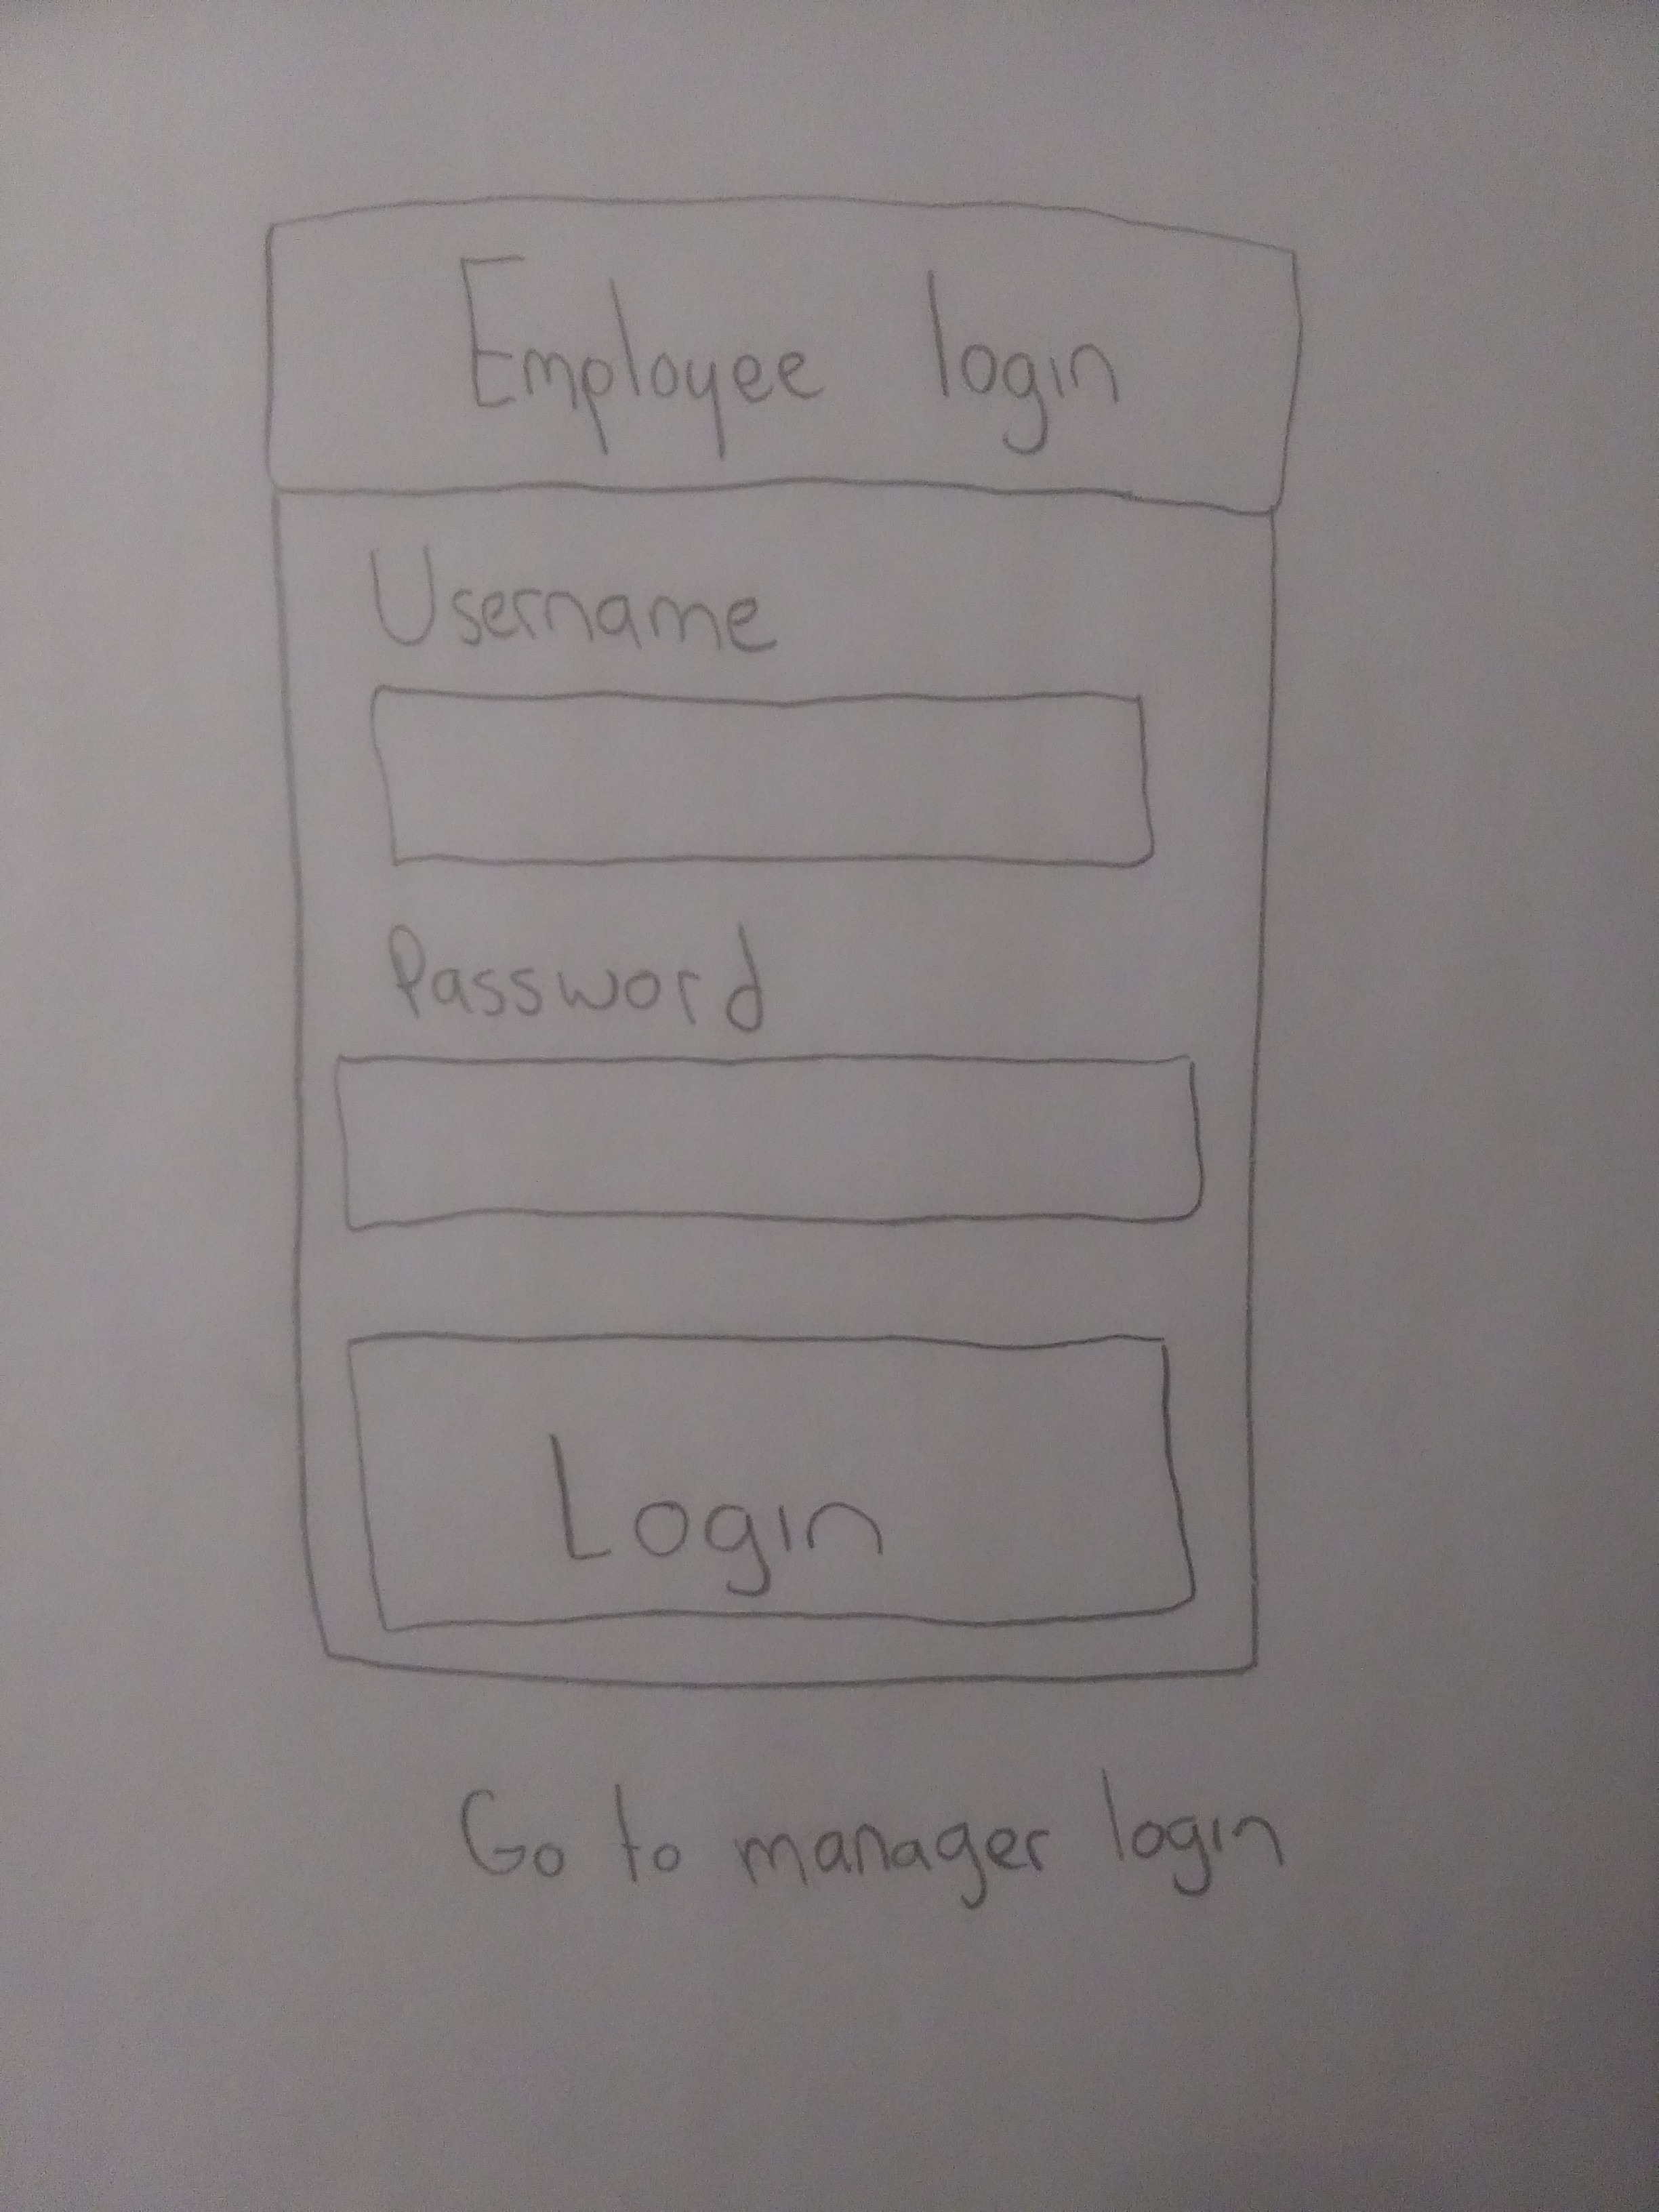 Employee login
Username
Password
Login
Go to manager login